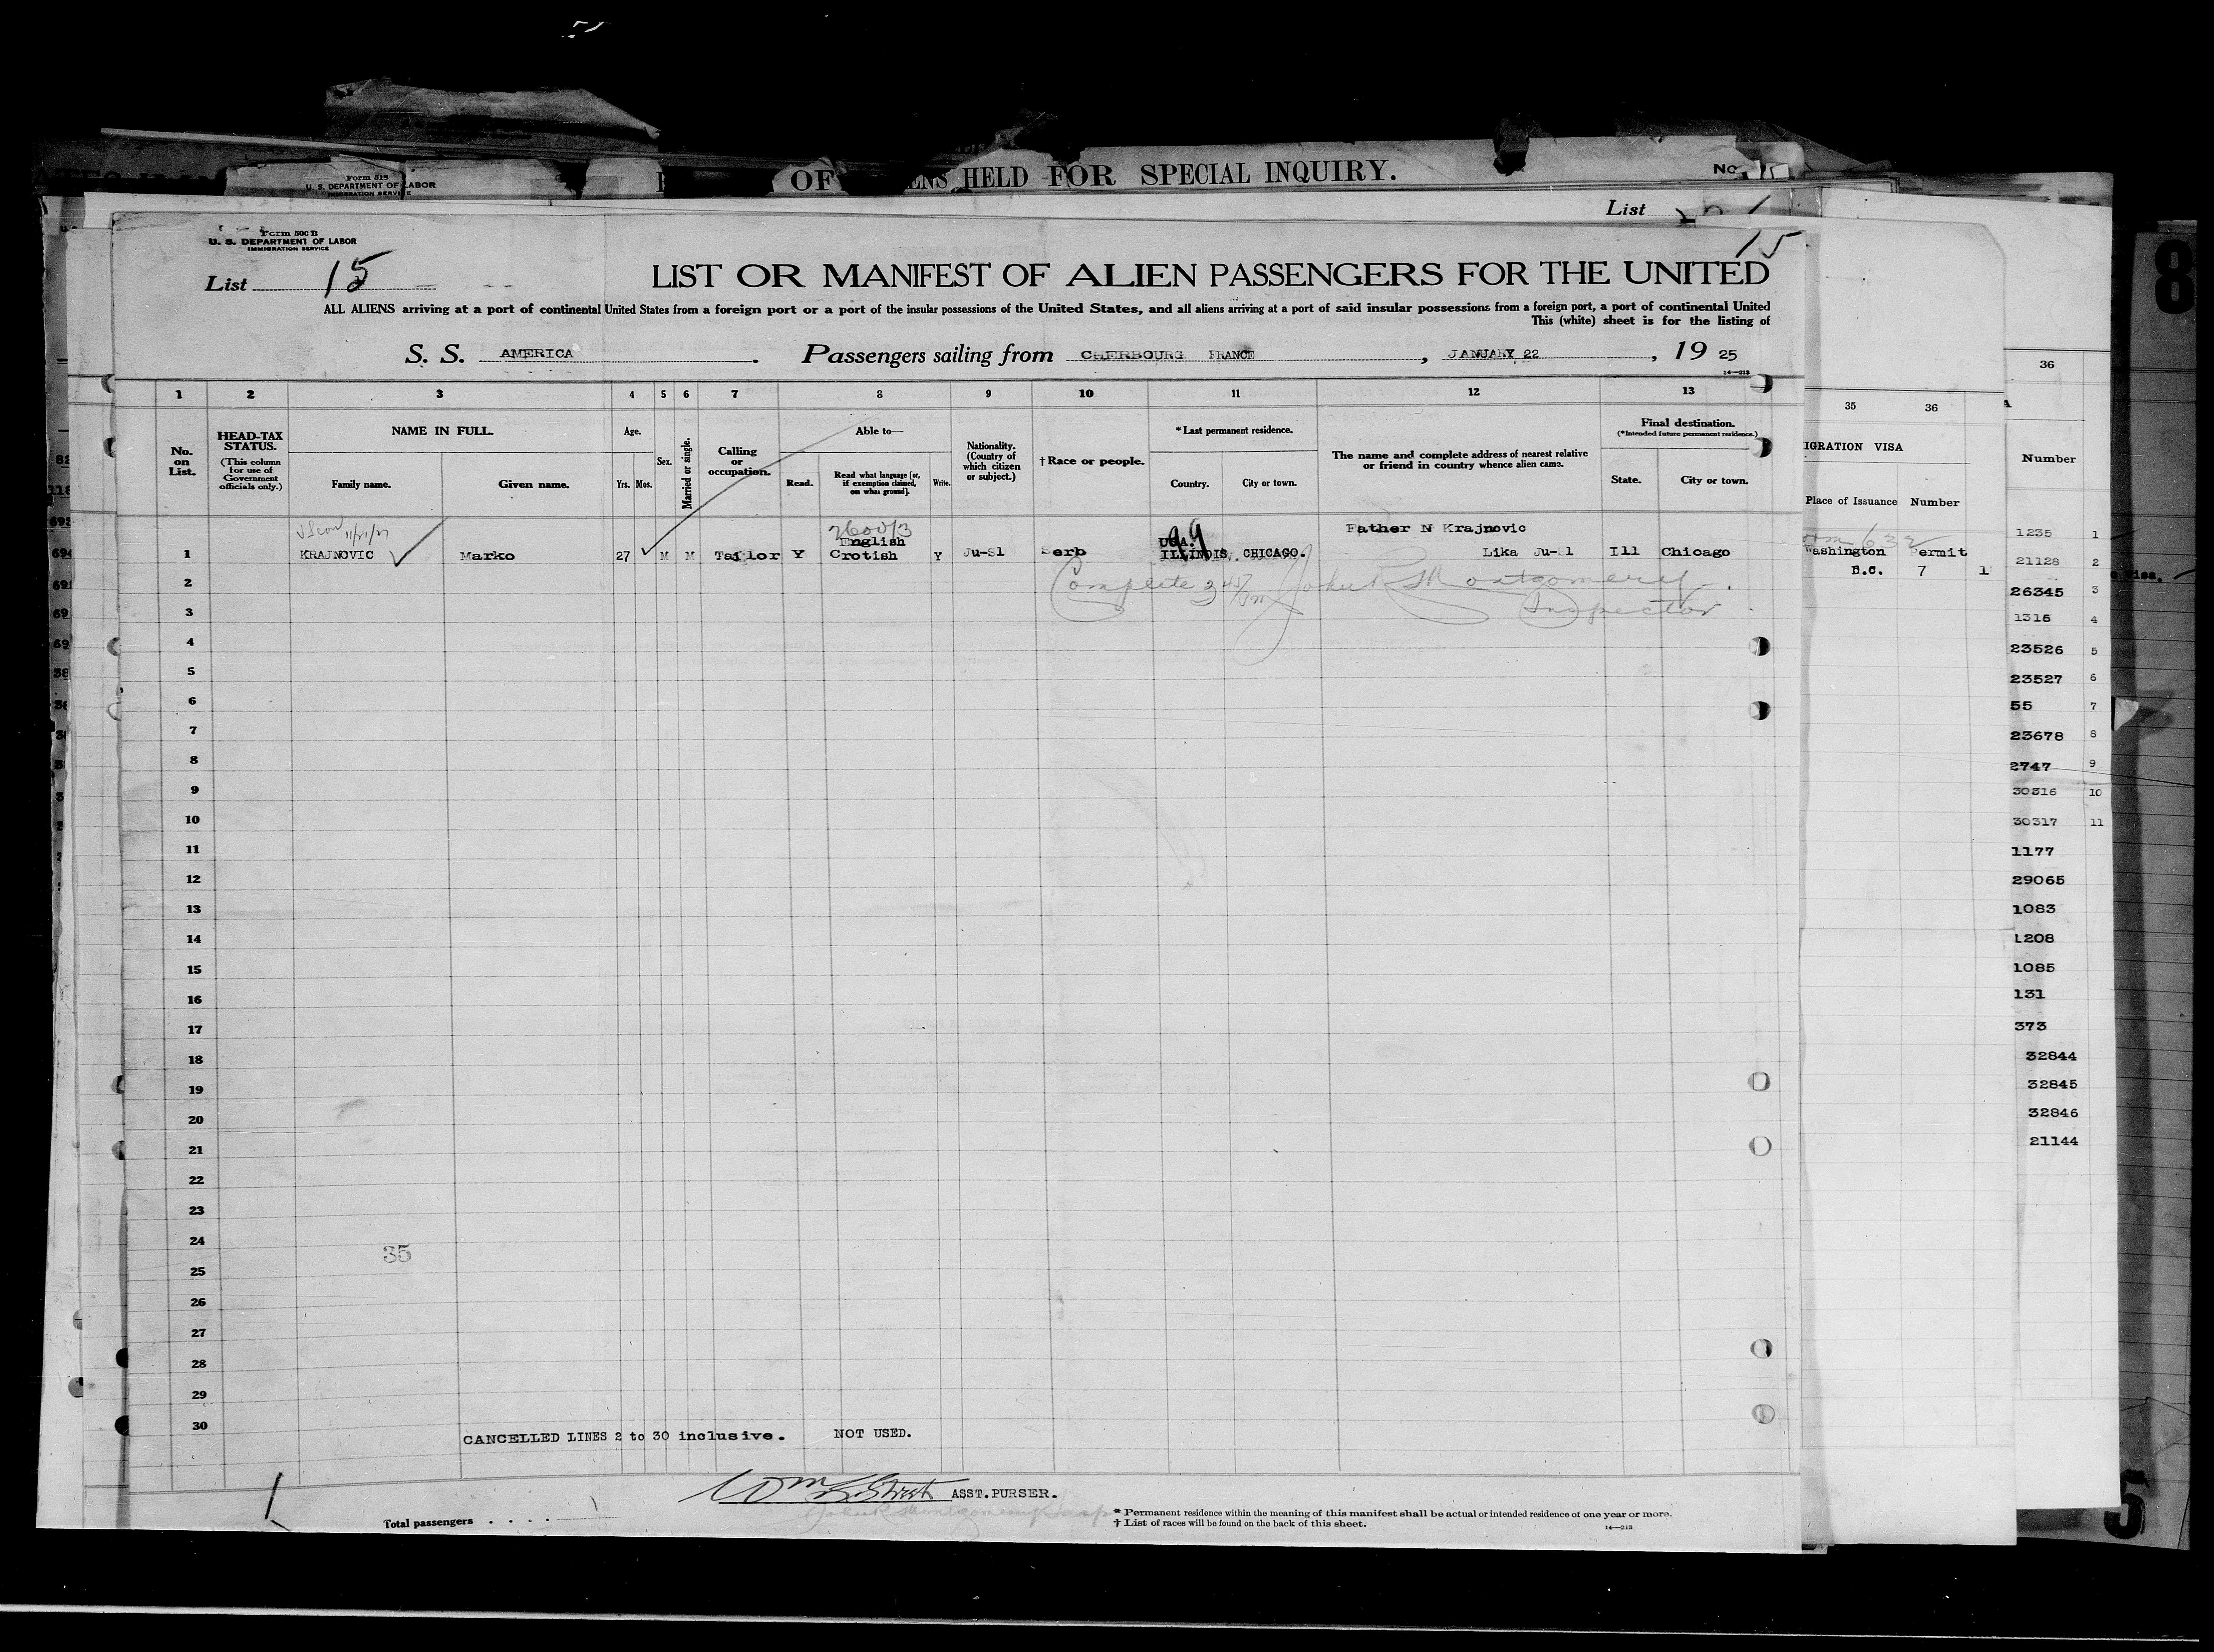 Form 518
U. S. DEPARTMENT OF LABOR
IMMIGRATION SERVICE
OF HELD FOR SPECIAL INQUIRY.
No.
List
Form 500 B
U. S. DEPARTMENT OF LABOR
IMMIGRATION SERVICE
15
List 15
LIST OR MANIFEST OF ALIEN PASSENGERS FOR THE UNITED
ALL ALIENS arriving at a port of continental United States from a foreign port or a port of the insular possessions of the United States, and all aliens arriving at a port of said insular possessions from a foreign port, a port of continental United
This (white) sheet is for the listing of
S. S. AMERICA . Passengers sailing from CHERBOURG FRANCE , JANUARY 22 , 19 25
14—213
1 2 3 4 5 6 7 8 9 10 11 12 13
No. on List.
HEAD-TAX STATUS.
(This column for use of Government officials only.)
NAME IN FULL.
Family name. Given name.
Age.
Yrs. Mos.
Sex.
Married or single.
Calling or occupation.
Able to—
Read. Read what language [or, if exemption claimed, on what ground]. Write.
Nationality. (Country of which citizen or subject.)
†Race or people.
*Last permanent residence.
Country. City or town.
The name and complete address of nearest relative or friend in country whence alien came.
Final destination.
(*Intended future permanent residence.)
State. City or town.
35 36
IGRATION VISA
Place of Issuance Number
36
Number
11/21/27
26003
English
USA.
Father N Krajnovic
1 KRAJNOVIC Marko 27 M M Tailor Y Crotish Y Ju-Sl Serb ILLINOIS, CHICAGO. Lika Ju-Sl Ill Chicago Washington Permit
D.C. 7 1
2 Complete John R Montgomery
3 Inspector
4
5
6
7
8
9
10
11
12
13
14
15
16
17
18
19
20
21
22
23
24
35
25
26
27
28
29
30
CANCELLED LINES 2 to 30 inclusive. NOT USED.
1235 1
21128 2
26345 3
1315 4
23526 5
23527 6
55 7
23678 8
2747 9
30316 10
30317 11
1177
29065
1083
1208
1085
131
373
32844
32845
32846
21144
8
5
Wm Street ASST.PURSER.
Total passengers . . . .
* Permanent residence within the meaning of this manifest shall be actual or intended residence of one year or more.
† List of races will be found on the back of this sheet.
14—213